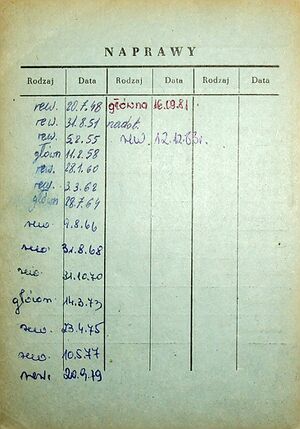 NAPRAWY
Rodzaj Data Rodzaj Data Rodzaj Data
rew. 20.7.48 główna 16.09.81
rew. 31.8.51 nadst.
rew. 5.2.55 rew. 12.12.83r.
główn 11.2.58
rew. 28.1.60
rew. 3.3.62
główn 28.7.64
rew. 9.8.66
rew. 31.8.68
rew. 31.10.70
główn. 14.3.73
rew. 23.4.75
rew. 10.5.77
20.9.79